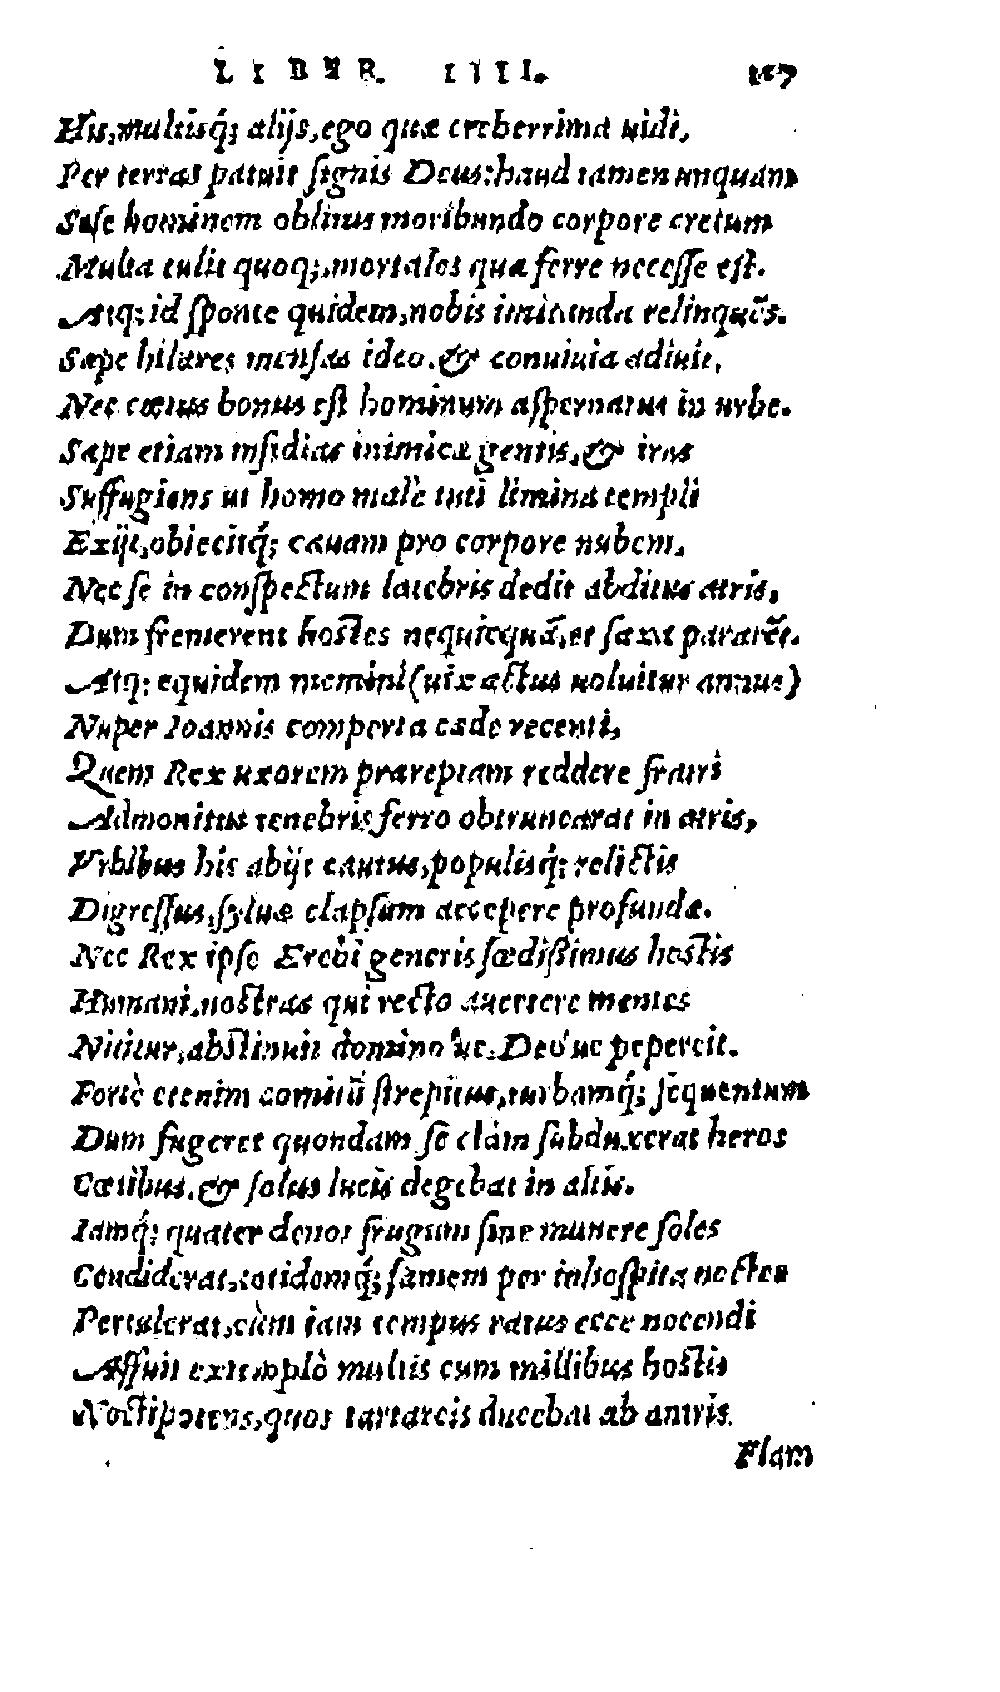 LIBER IIII. 157
His, multisq́; alijs, ego quæ creberrima uidi,
Per terras patuit ſignis Deus: haud tamen unquam
Seſe hominem oblitus moribundo corpore cretum
Multa tulit quoq;, mortales quæ ferre neceſſe eſt.
Atq; id ſponte quidem, nobis imitanda relinquẽs.
Sæpe hilares menſas ideo, & conuiuia adiuit,
Nec cœtus bonus eſt hominum aſpernatus in urbe.
Sæpe etiam inſidias inimicæ gentis, & iras
Suffugiens ut homo malè tuti limina templi
Exijt, obiecitq́; cauam pro corpore nubem.
Nec ſe in conſpectum latebris dedit abditus atris,
Dum fremerent hoſtes nequicquã, et ſaxa pararẽt.
Atq; equidem memini (uix actus uoluitur annus)
Nuper Ioannis comperta cæde recenti,
Quem Rex uxorem præreptam reddere fratri
Admonitus tenebris ferro obtruncarat in atris,
Vrbibus his abijt cautus, populisq́; relictis
Digreſſus, ſyluæ elapſum accepere profundæ.
Nec Rex ipſe Erebi generis fœdiſſimus hoſtis
Humani, noſtras qui recto auertere mentes
Nititur, abſtinuit domino ue, Deo ue pepercit.
Fortè etenim comitũ ſtrepitus, turbamq́; ſequentum
Dum fugeret quondam ſe clàm ſubduxerat heros
Cœtibus, & ſolus lucis degebat in altis.
Iamq́; quater denos frugum ſine munere ſoles
Condiderat, totidemq́; famem per inhoſpita noctes
Pertulerat, cùm iam tempus ratus ecce nocendi
Affuit extemplò multis cum millibus hoſtis
Noctipotens, quos tartareis ducebat ab antris.
Flam